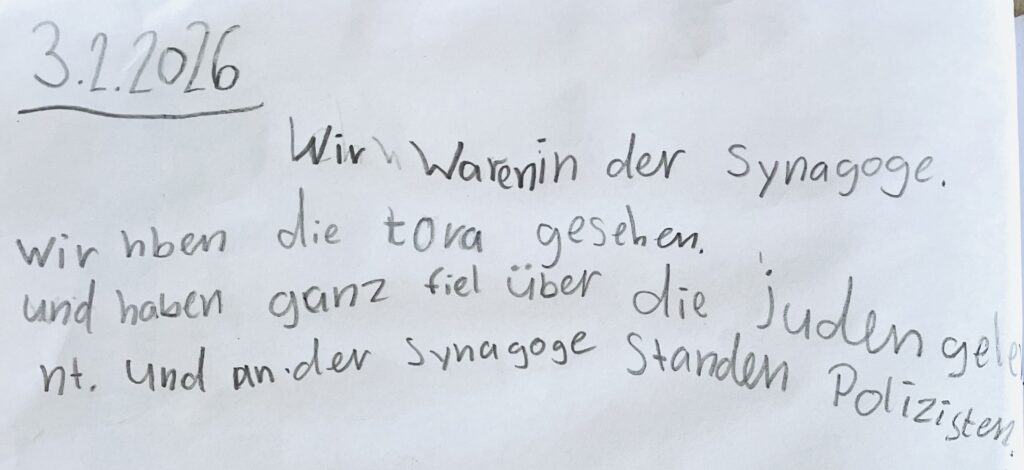 3.2.2026
Wir Warenin der Synagoge.
wir hben die tora gesehen.
und haben ganz fiel über die juden gele
nt. Und an der Synagoge Standen Polizisten.